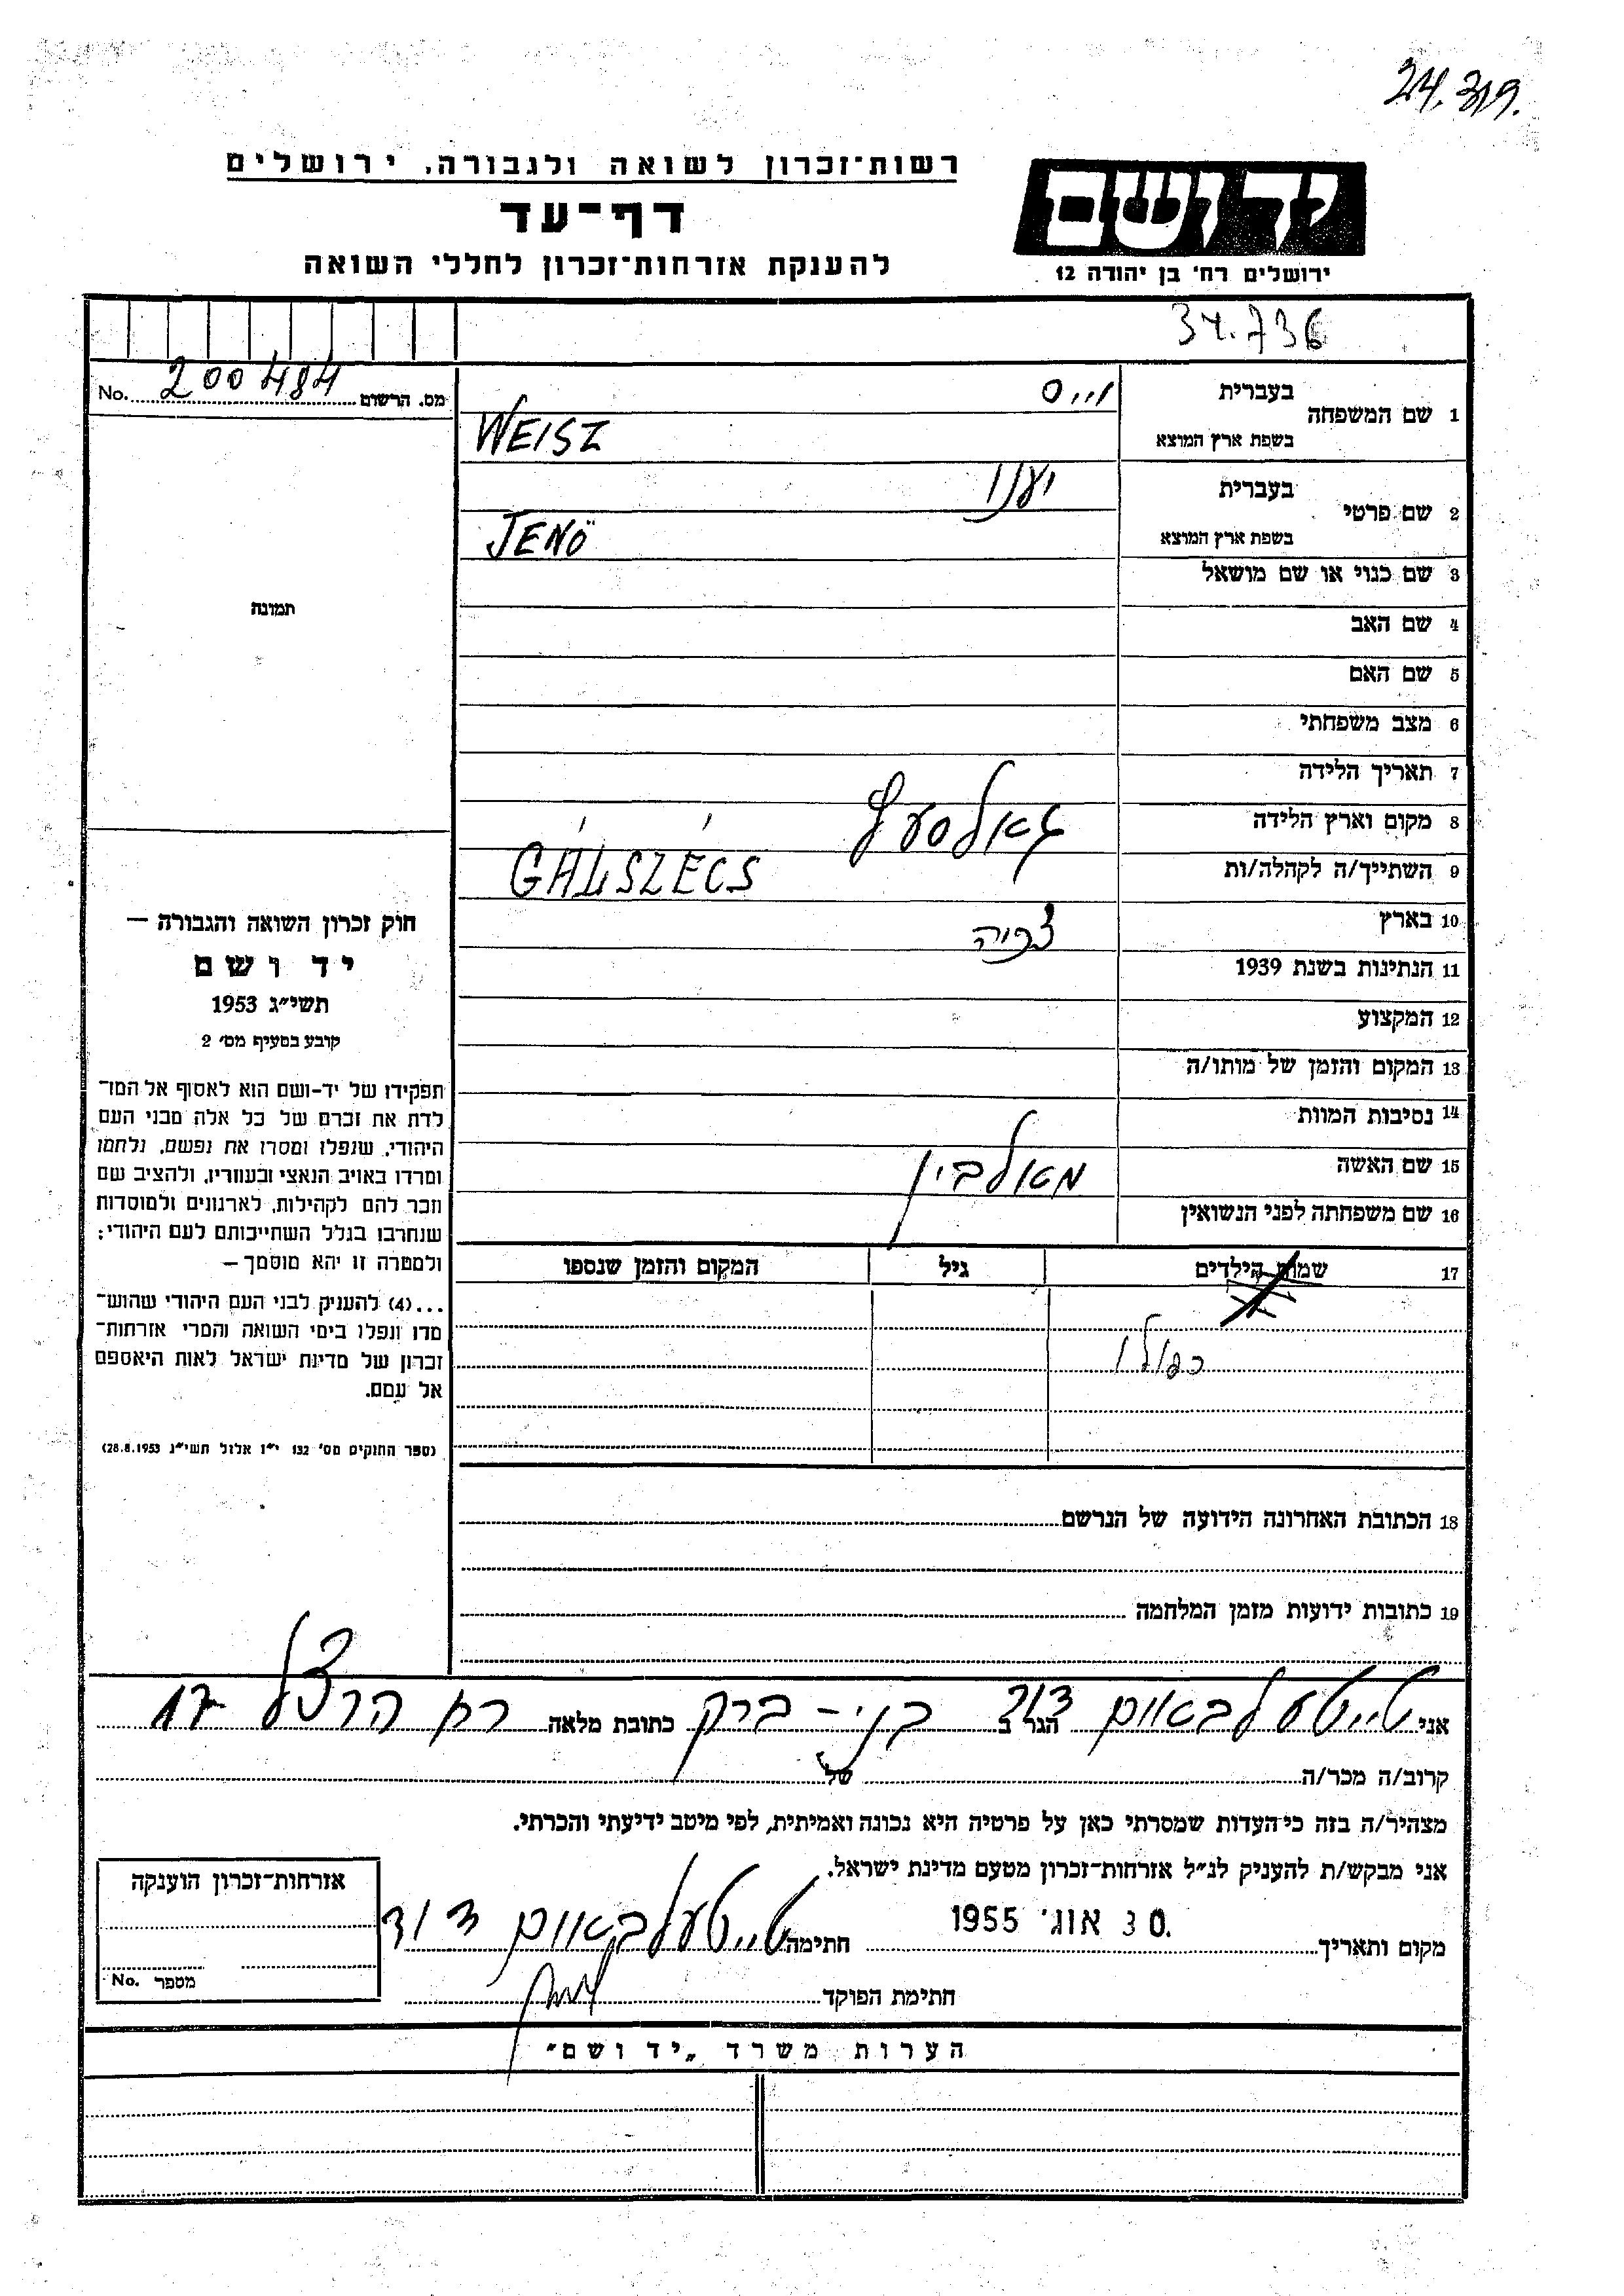 24.319.
רשות-זכרון לשואה ולגבורה, ירושלים
דף-עד
להענקת אזרחות-זכרון לחללי השואה
יד ושם
ירושלים רח' בן יהודה 12
34.736
No. 200484 מס. הרשום
1 שם המשפחה בעברית ווייס
בשפת ארץ המוצא WEISZ
2 שם פרטי בעברית יענו
בשפת ארץ המוצא JENÖ
3 שם כנוי או שם מושאל
4 שם האב
5 שם האם
6 מצב משפחתי
7 תאריך הלידה
8 מקום וארץ הלידה גאלסעץ
9 השתייך/ה לקהלה/ות GÁLSZÉCS
10 בארץ
11 הנתינות בשנת 1939
12 המקצוע
13 המקום והזמן של מותו/ה
14 נסיבות המוות
15 שם האשה מאלבין
16 שם משפחתה לפני הנשואין
17 שמות הילדים גיל המקום והזמן שנספו
18 הכתובת האחרונה הידועה של הנרשם
19 כתובות ידועות מזמן המלחמה
תמונה
חוק זכרון השואה והגבורה —
יד ושם
תשי״ג 1953
קובע בסעיף מס׳ 2
תפקידו של יד-ושם הוא לאסוף אל המו-
לדת את זכרם של כל אלה מבני העם
היהודי, שנפלו ומסרו את נפשם, נלחמו
ומרדו באויב הנאצי ובעוזריו, ולהציב שם
וזכר להם לקהילות, לארגונים ולמוסדות
שנחרבו בגלל השתייכותם לעם היהודי;
ולמטרה זו יהא מוסמך —
...(4) להעניק לבני העם היהודי שהוש-
מדו ונפלו בימי השואה והמרי אזרחות-
זכרון של מדינת ישראל לאות היאספם
אל עמם.
(ספר החוקים מס׳ 132 י״ז אלול תשי״ג 28.8.1953)
אני טייטעלבאום דוד הגר ב בני-ברק כתובת מלאה רח הרצל 17
קרוב/ה מכר/ה של
מצהיר/ה בזה כי העדות שמסרתי כאן על פרטיה היא נכונה ואמיתית, לפי מיטב ידיעתי והכרתי.
אני מבקש/ת להעניק לנ״ל אזרחות-זכרון מטעם מדינת ישראל.
מקום ותאריך 30 אוג׳ 1955 חתימה טייטעלבאום דוד
חתימת הפוקד
אזרחות-זכרון הוענקה
מספר No.
הערות משרד „יד ושם״